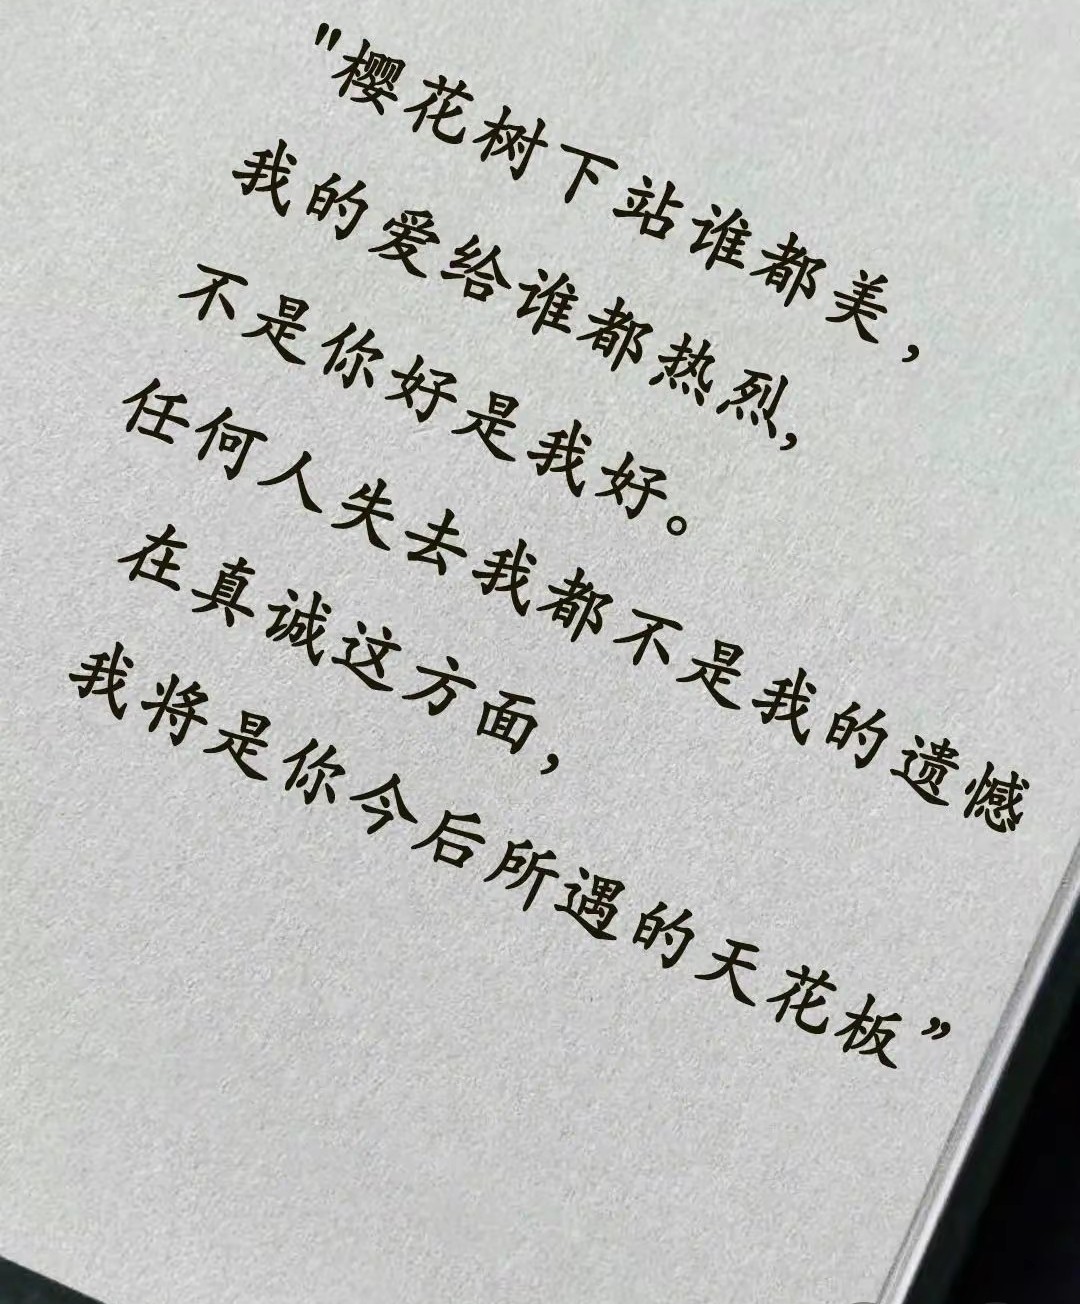 "樱花树下站谁都美，
我的爱给谁都热烈，
不是你好是我好。
任何人失去我都不是我的遗憾
在真诚这方面，
我将是你今后所遇的天花板”